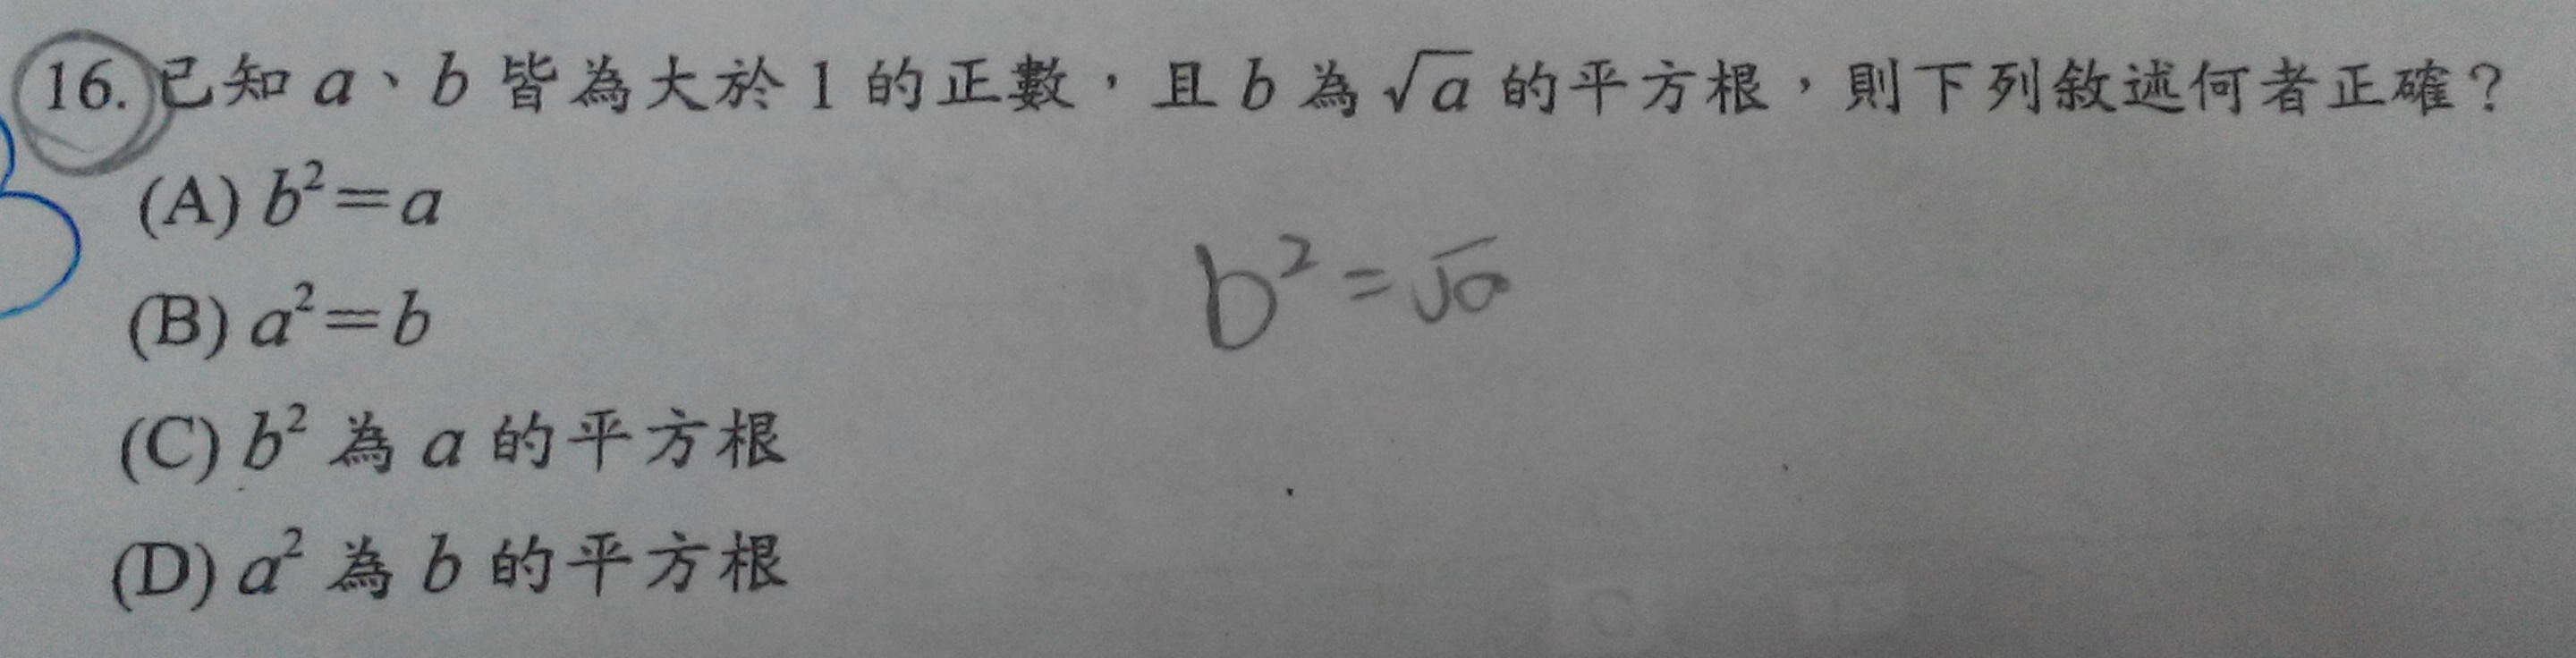 16. 已知 a、b 皆為大於 1 的正數,且 b 為 √a 的平方根,則下列敘述何者正確?
(A) b²=a
b²=√a
(B) a²=b
(C) b² 為 a 的平方根
(D) a² 為 b 的平方根